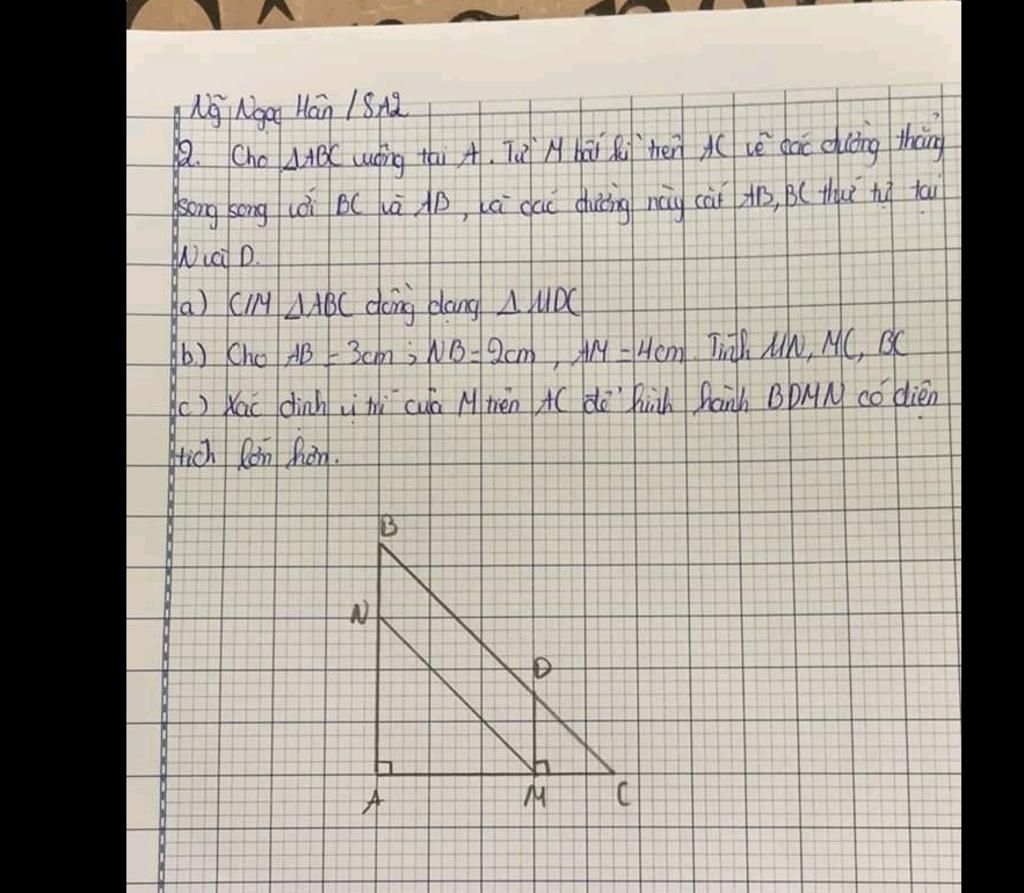 Ng̃ Ngọc Hân / 8A2
2. Cho ΔABC vuông tại A. Từ M bất kì trên AC vẽ các đường thẳng
song song với BC và AB, và các đường này cắt AB, BC thứ tự tại
N và D.
a) C/M ΔABC đồng dạng ΔMDC
b) Cho AB = 3cm; NB = 2cm, AM = 4cm Tính MN, MC, BC
c) Xác định vị trí của M trên AC để hình hành BDMN có diện
tích lớn hơn.
B
N
D
A
M
C